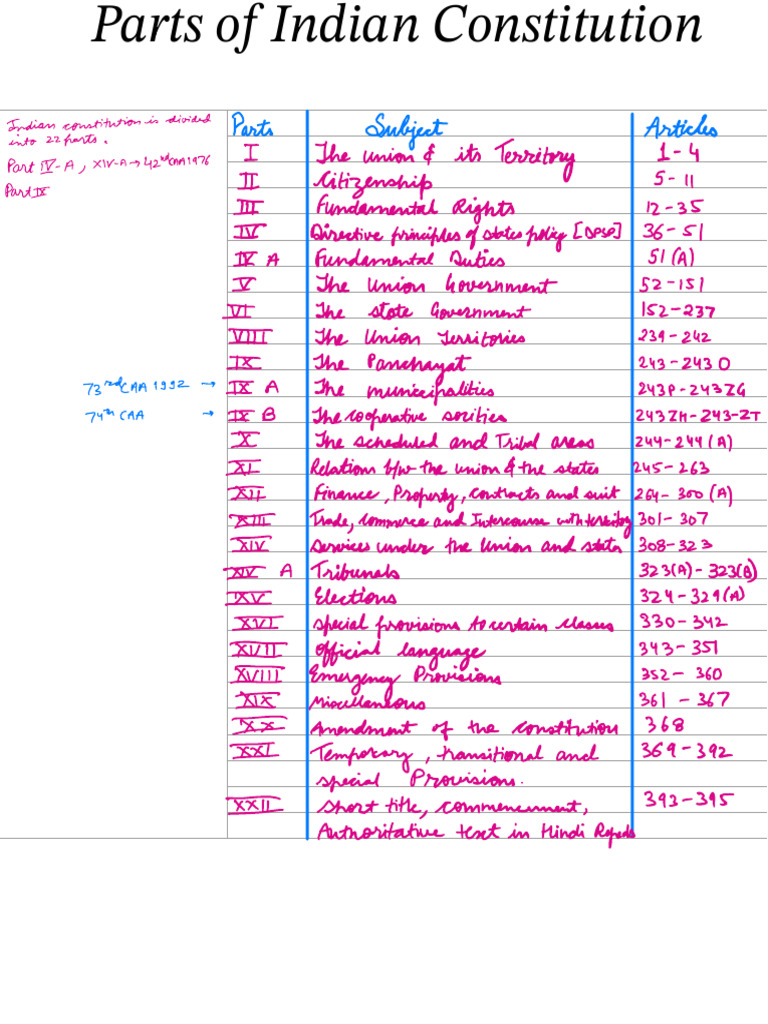 Parts of Indian Constitution
Indian constitution is divided
into 22 parts.
Part IV-A, XIV-A → 42nd CAA 1976
Part IX
Parts Subject Articles
I The union & its Territory 1-4
II Citizenship 5-11
III Fundamental Rights 12-35
IV Directive principles of states policy [DPSP] 36-51
IV A Fundamental Duties 51(A)
V The Union Government 52-151
VI The state Government 152-237
VIII The Union Territories 239-242
IX The Panchayat 243-243O
73rd CAA 1992 → IX A The municipalities 243P-243ZG
74th CAA → IX B The cooperative socities 243ZH-243-ZT
X The scheduled and Tribal areas 244-244(A)
XI Relations b/w the union & the states 245-263
XII Finance, Property, contracts and suit 264-300(A)
XIII Trade, commerce and Intercourse with territory 301-307
XIV Services under the Union and states 308-323
XIV A Tribunals 323(A)-323(B)
XV Elections 324-329(A)
XVI special provisions to certain classes 330-342
XVII official language 343-351
XVIII Emergency Provisions 352-360
XIX Miscellaneous 361-367
XX Amendment of the constitution 368
XXI Temporary, transitional and 369-392
special Provisions.
XXII short title, commencement, 393-395
Authoritative text in Hindi